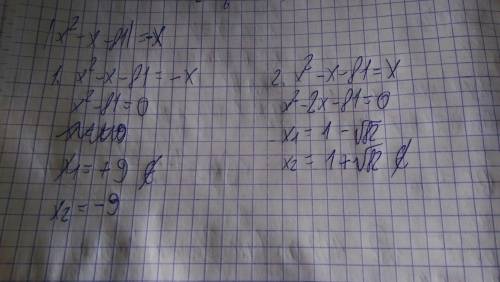 |x²-x-81|=-x
1. x²-x-81=-x
x²-81=0
x₁=+9 ∉
x₂=-9
2. x²-x-81=x
x²-2x-81=0
x₁=1-√82
x₂=1+√82 ∉